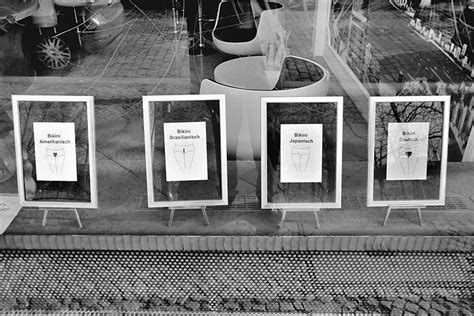 Bikini
Amerikanisch
Bikini
Brasilianisch
Bikini
Japanisch
Bikini
Deutsch